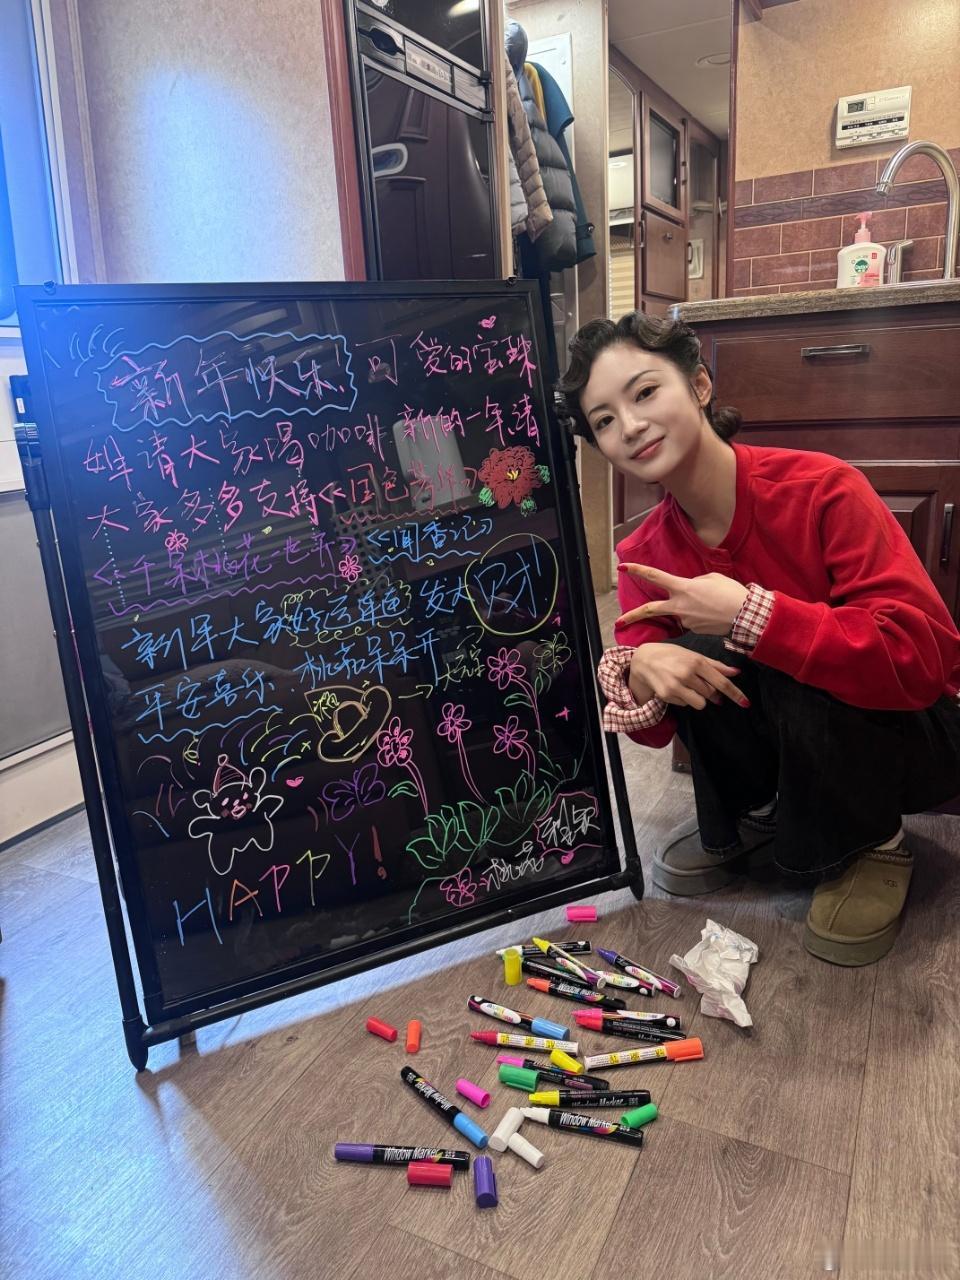 新年快乐!可爱的宝珠
姐请大家喝咖啡.新的一年请
大家多多支持《国色芳华》
《千朵桃花一世开》《闻香记》
新年大家好运连连 发大财!
平安喜乐.桃花朵朵开
HAPPY!
桃花
Window Marker
Window Marker
Window Marker
Window Marker
Window Marker